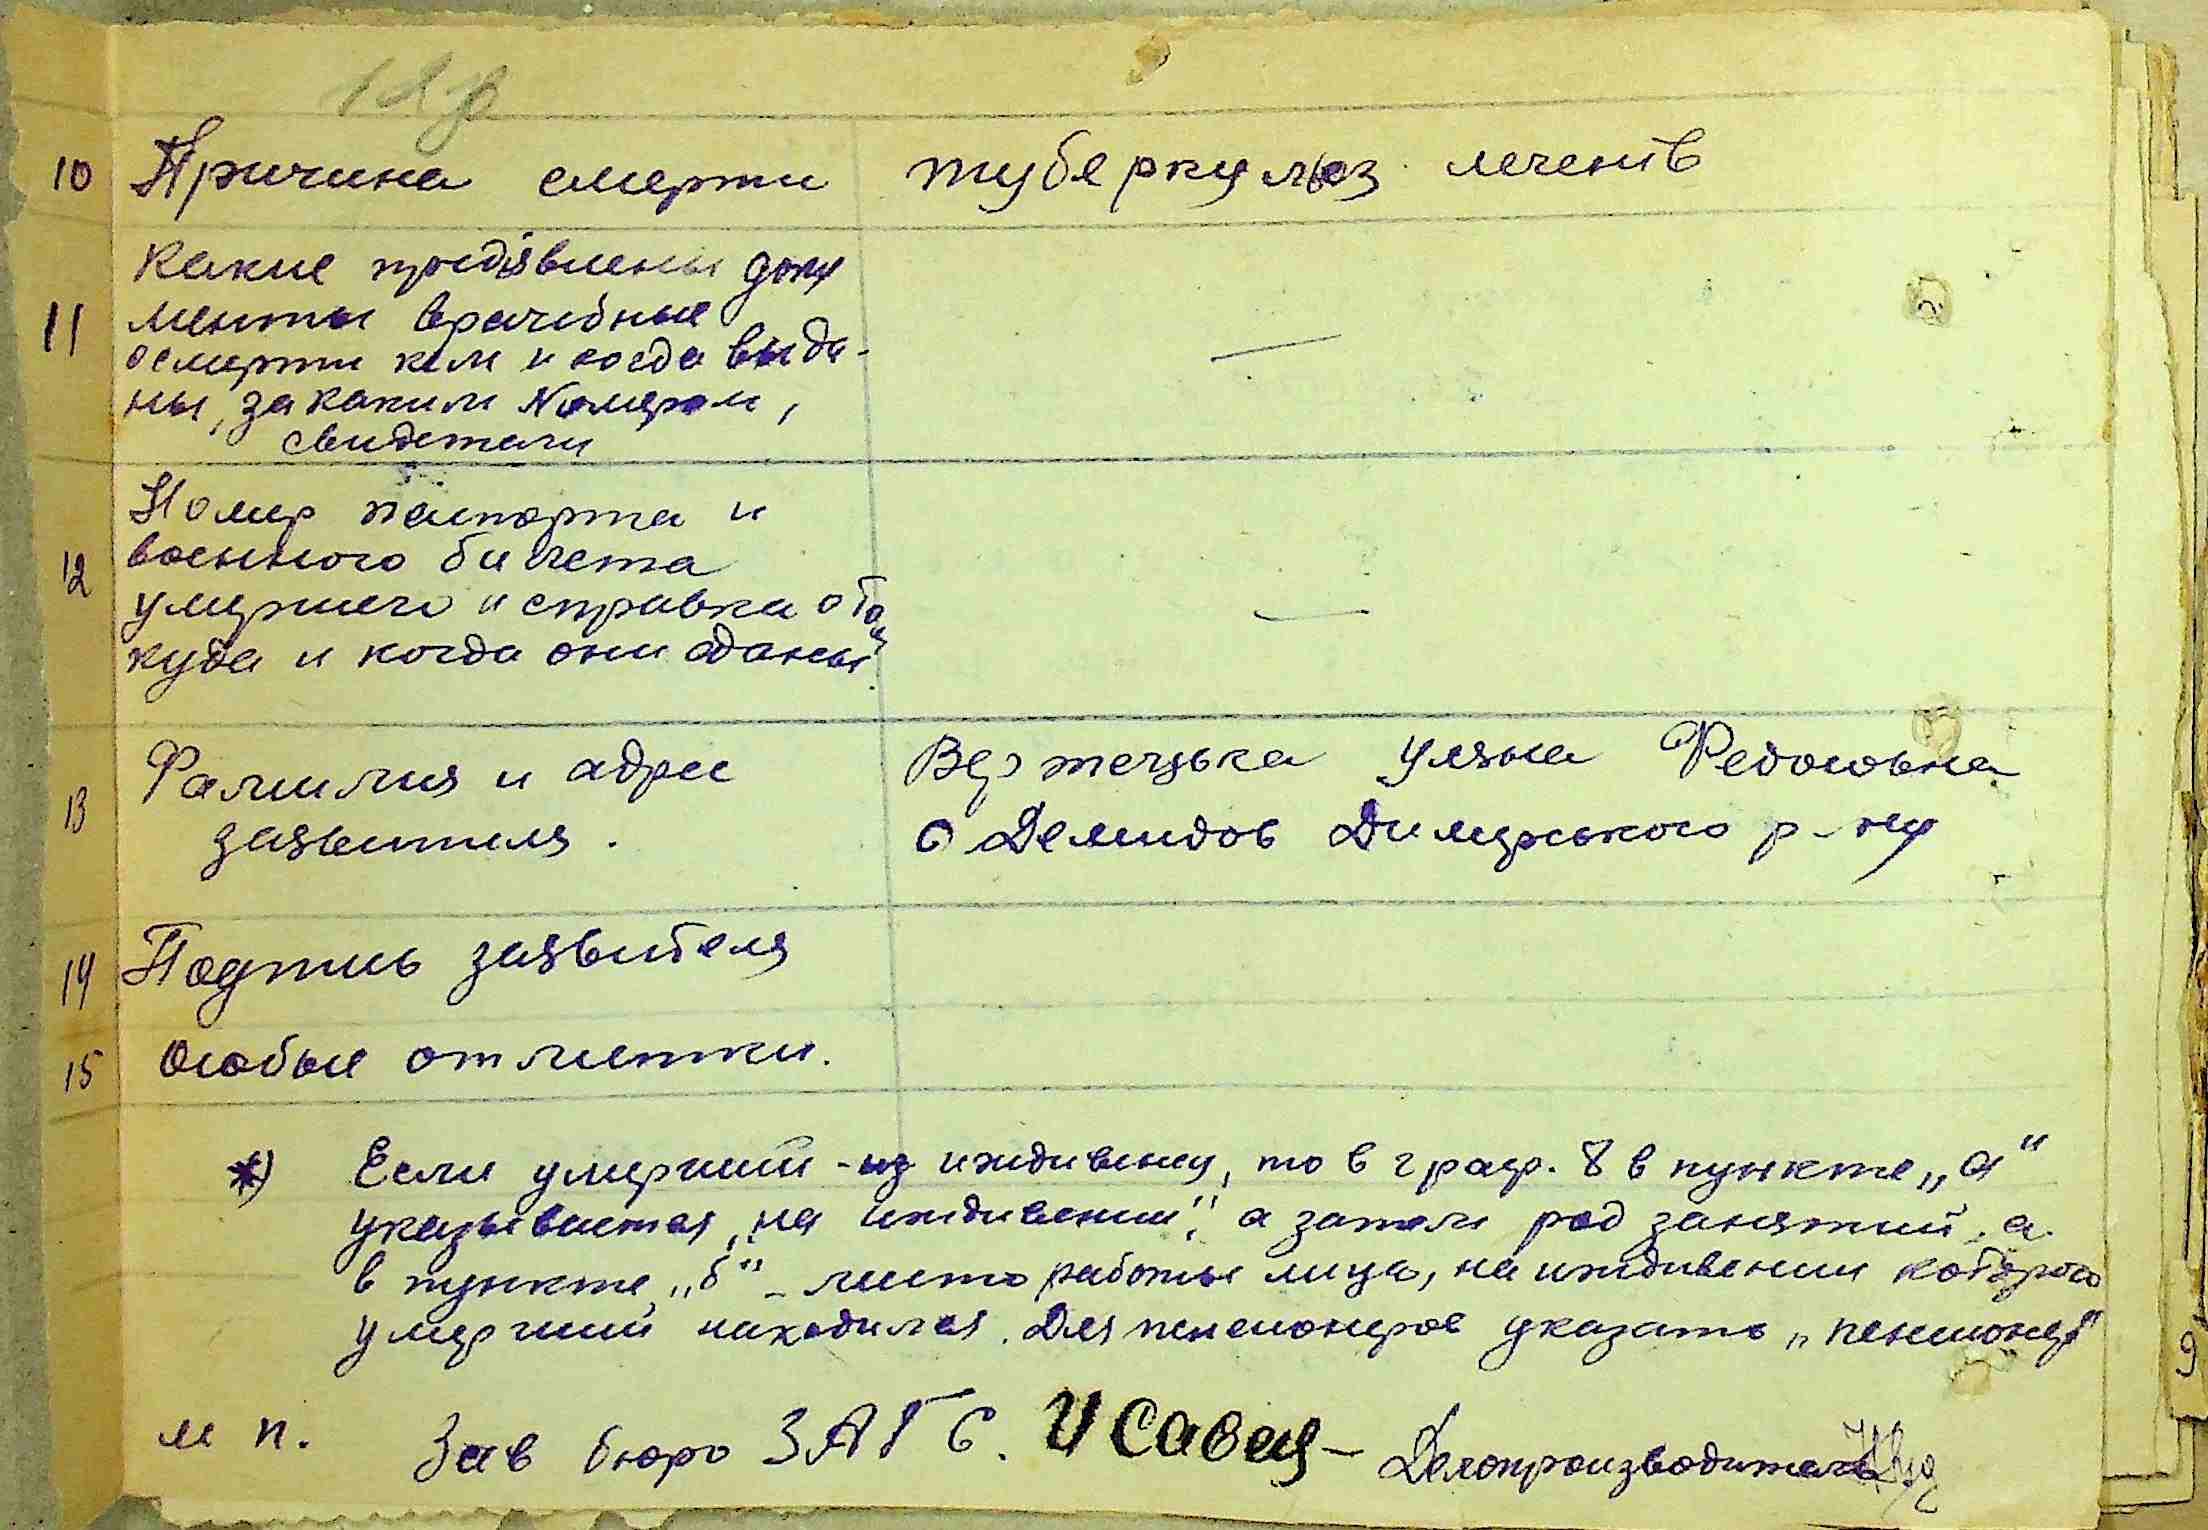 10 Причина смерти туберкульоз легенів
Какие предъявлены доку
менты врачебные
11
о смерти кем и когда выда-
ны, за каким номером,
свидетели
—
Номер паспорта и
военного билета
12
умершего и справка о то,
куда и когда они сданы
—
Фамилия и адрес Вертецька Уляна Федосовна
13
заявителя. с Демидов Димерського р-ну
14 Подпись заявителя
15 Особые отметки.
*) Если умерший - из иждивенц, то в граф. 8 в пункте „а“
указывается „на иждивении“, а затем род занятий, а
в пункте „б“ - место работы лица, на иждивении которого
умерший находился. Для пенсионеров указать „пенсионер“
м п. Зав бюро ЗАГС. Делопроизводитель